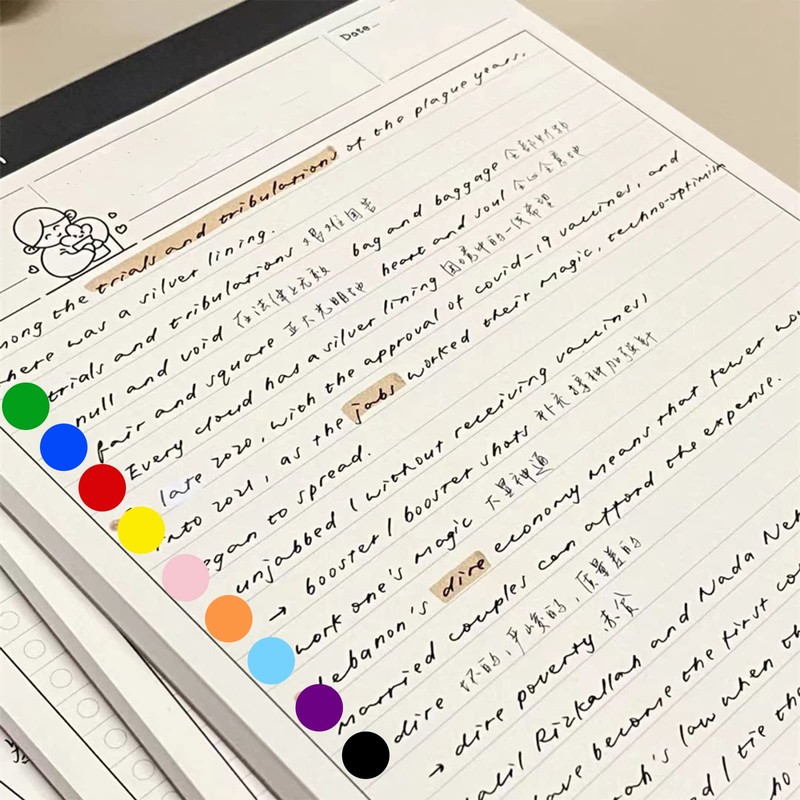 Date
mong the trials and tribulations of the plague years,
here was a silver lining.
trials and tribulations 艰难困苦
null and void 在法律上无效 bag and baggage 全部财物
fair and square 正大光明地 heart and soul 全心全意地
Every cloud has a silver lining 困境中的一线希望
late 2020, with the approval of covid-19 vaccines, and
into 2021, as the jabs worked their magic, techno-optimism
egan to spread.
unjabbed / without receiving vaccines;
→ booster / booster shots 补充接种加强针
work one's magic 大显神通
Lebanon's dire economy means that fewer
married couples can afford the expense.
dire 坏的,严峻的,质量差的
→ dire poverty 赤贫
alil Rizkallah and Nada
ave become the first
ah's law when
d I tie
ho